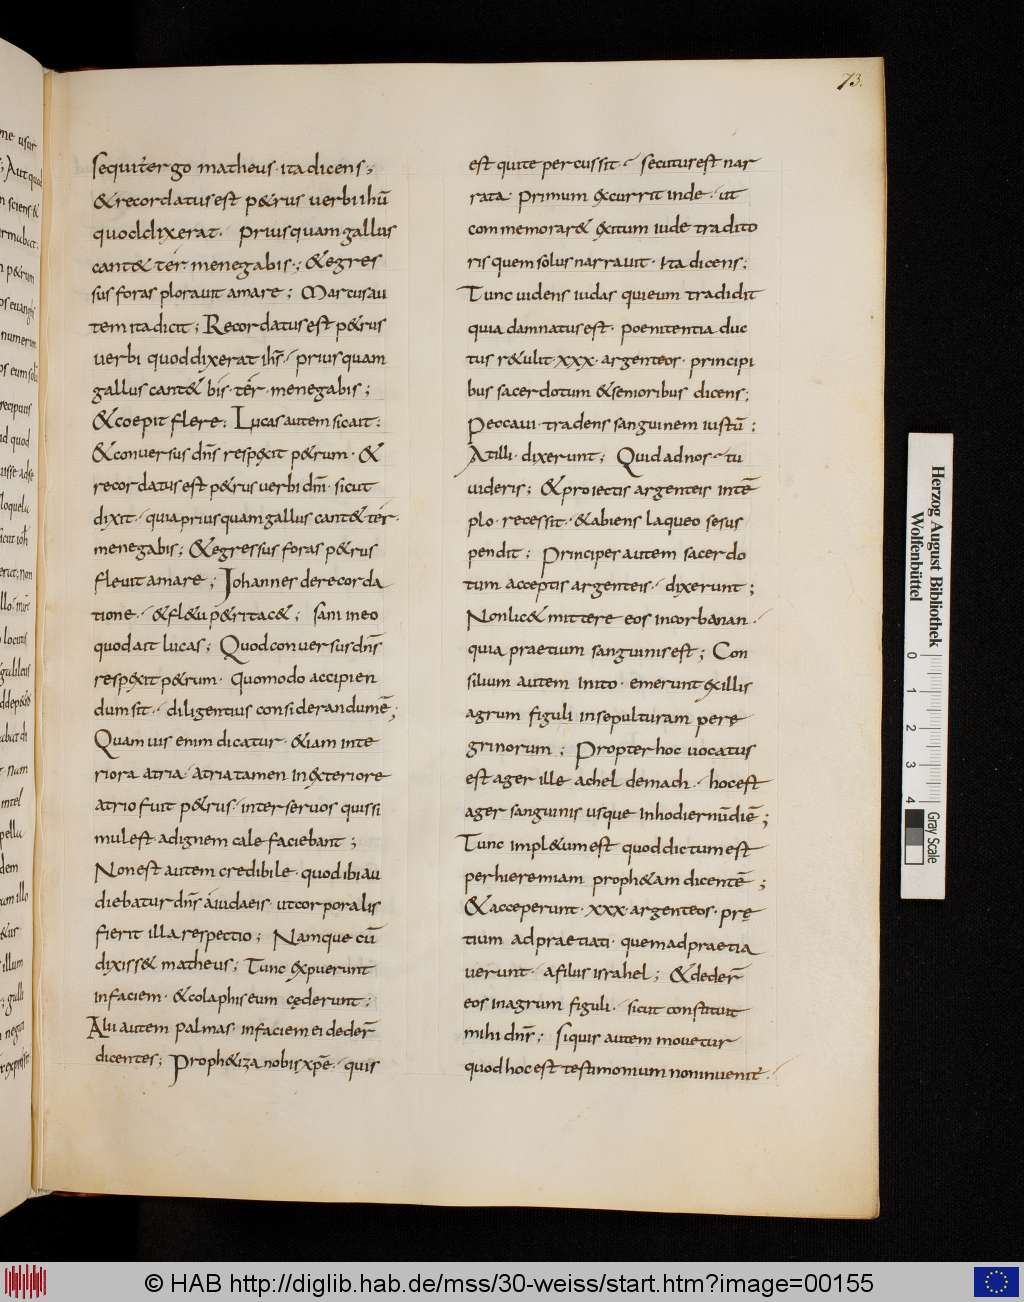 73.
sequit ergo matheus· ita dicens;
& recordatus est p&rus uerbi ihū
quod dixerat· priusquam gallus
cant& ter me negabis·; & egres
sus foras plorauit amare; Marcus au
tem ita dicit; Recordatus est p&rus
uerbi quod dixerat ihs̄· priusquam
gallus cant& bis· ter· me negabis;
& coepit flere· Lucas autem sic ait:
& conuersus dn̄s respexit p&rum· &
recordatus est p&rus uerbi dn̄i· sicut
dixit· quia priusquam gallus cant& ter·
me negabis; & egressus foras p&rus
fleuit amare; Johannes de recorda
tione· & fl&u p&ri tac&; sani in eo
quod ait lucas; Quod conuersus dn̄s
respexit p&rum· quomodo accipien
dum sit· diligentius considerandum ē;
Quamuis enim dicatur· &iam inte
riora atria· atria tamen in exteriore
atrio fuit p&rus· inter seruos qui si
mul est· ad ignem calefaciebant;
Non est autem credibile· quod ibi au
diebatur dn̄s a iudaeis· ut corporalis
fierit illa respectio; Namque cū
dixiss& matheus; Tunc expuerunt
in faciem· & colaphis eum cęderunt;
Alii autem palmas· in faciem ei dedeř
dicentes; Proph&iza nobis xpē· quis
est qui te percussit· secutus est nar
rata· primum excurrit inde· ut
commemorar& exitum iude tradito
ris quem solus narrauit· Ita dicens;
Tunc uidens iudas qui eum tradidit
quia damnatus est· poenitentia duc
tus r&ulit· xxx· argenteos· principi
bus sacerdotum & senioribus dicens;
Peccaui· tradens sanguinem iustū;
At illi· dixerunt; Quid ad nos· tu
uideris; & proiectis argenteis in tē
plo· recessit· & abiens laqueo se sus
pendit; Principes autem sacerdo
tum acceptis argenteis· dixerunt;
Non lic& mittere eos in corbanan·
quia praetium sanguinis est; Con
silium autem inito· emerunt ex illis
agrum figuli in sepulturam pere
grinorum; Propter hoc uocatus
est ager ille achel demach· hoc est
ager sanguinis usque in hodiernū diē;
Tunc impl&um est quod dictum est
per hieremiam proph&am dicentē;
& acceperunt· xxx· argenteos· prę
tium adpraetiati· quem adpraetia
uerunt· a filius israhel; & dedeř
eos in agrum figuli· sicut constituit
mihi dn̄s; Si quis autem mouetur
quod hoc est testimonium non inuenit·
Herzog August Bibliothek
Wolfenbüttel
0 1 2 3 4
Gray Scale
© HAB http://diglib.hab.de/mss/30-weiss/start.htm?image=00155